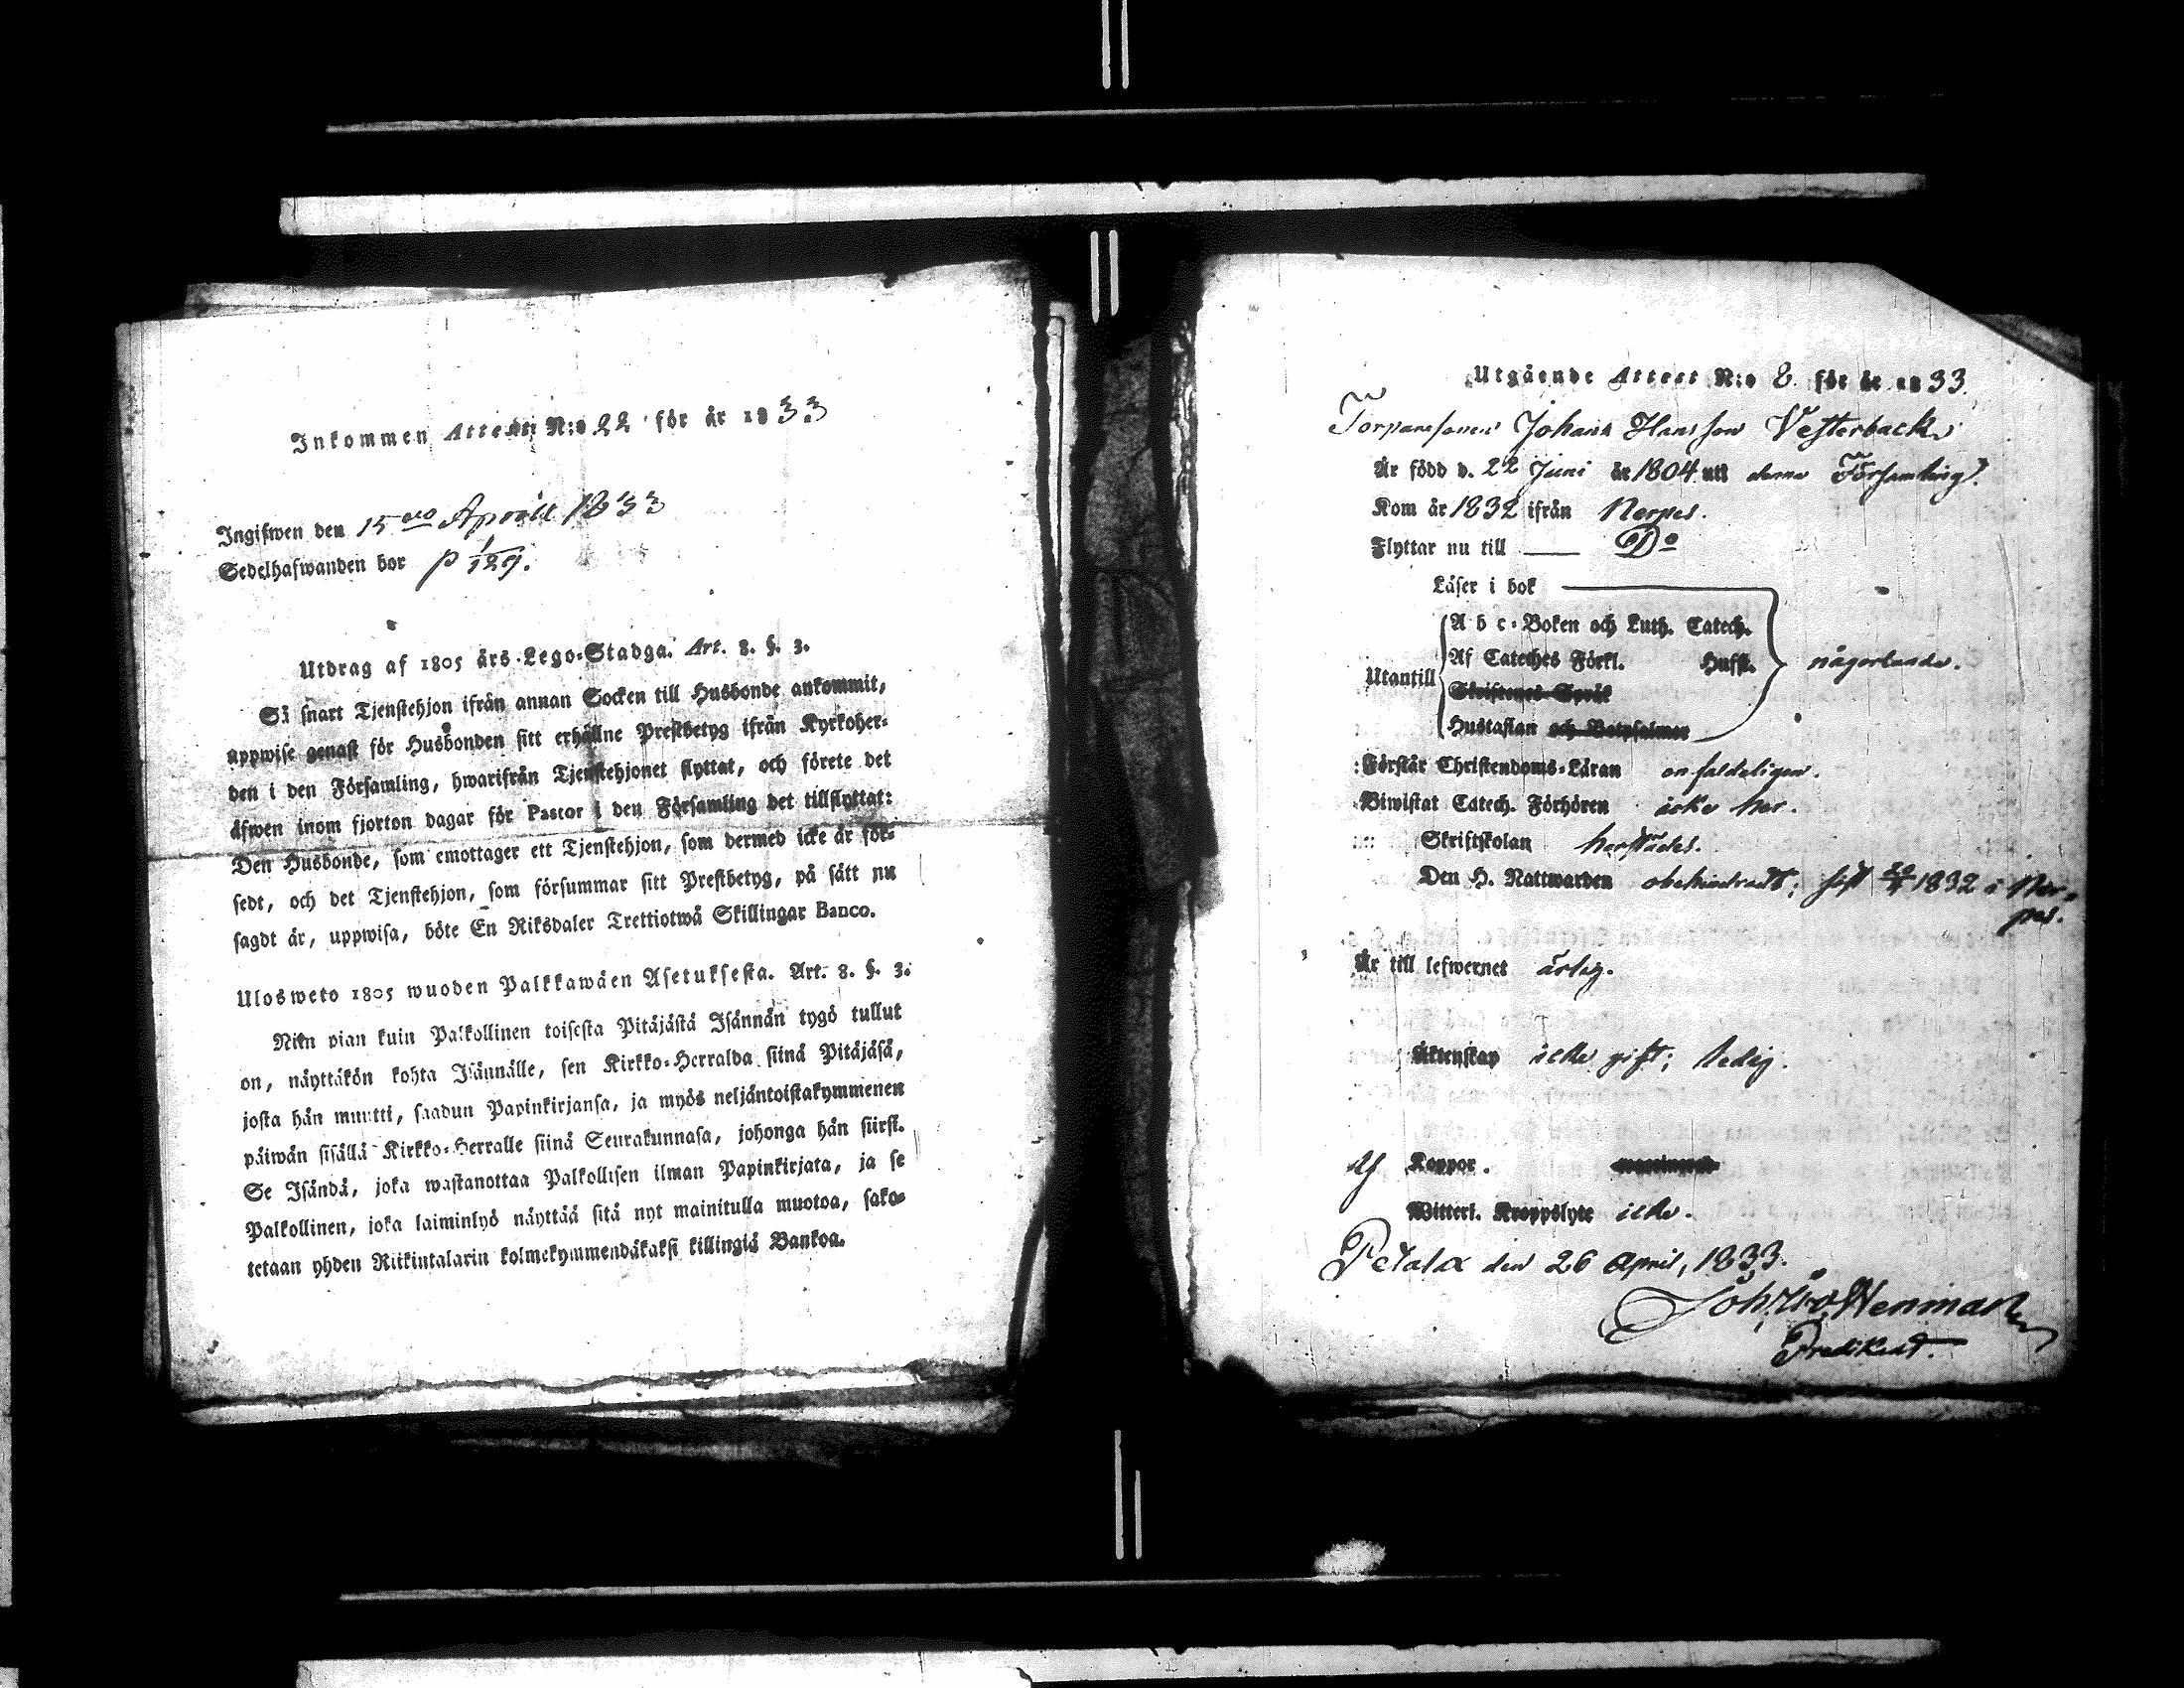 Inkommen Attest N:o 22 för år 1833
Ingifwen den 15 Aprill 1833
Sedelhafwanden bor p 129.
Utdrag af 1805 års Lego-Stadga. Art. 8. §. 3.
Så snart Tjenstehjon ifrån annan Socken till Husbonde ankommit,
uppwise genast för Husbonden sitt erhållne Prestbetyg ifrån Kyrkoher-
den i den Församling, hwarifrån Tjenstehjonet flyttat, och förete det
äfwen inom fjorton dagar för Pastor i den Församling det tillflyttat:
Den Husbonde, som emottager ett Tjenstehjon, som dermed icke är för-
sedt, och det Tjenstehjon, som försummar sitt Prestbetyg, på sätt nu
sagdt är, uppwisa, böte En Riksdaler Trettiotwå Skillingar Banco.
Ulosweto 1805 wuoden Palkkawäen Asetuksesta. Art. 8. §. 3.
Niin pian kuin Palkollinen toisesta Pitäjästä Isännän tygö tullut
on, näyttäkön kohta Isännälle, sen Kirkko-Herralda siinä Pitäjäsä,
josta hän muutti, saadun Papinkirjansa, ja myös neljäntoistakymmenen
päiwän sisällä Kirkko-Herralle siinä Seurakunnasa, johonga hän siirst.
Se Isändä, joka wastanottaa Palkollisen ilman Papinkirjata, ja se
Palkollinen, joka laiminlyö näyttää sitä nyt mainitulla muotoa, sako-
tetaan yhden Riikintalarin kolmekymmendäkaksi killingiä Bankoa.
Utgående Attest N:o 8 för år 1833.
Torparesonen Johan Hansson Vesterback
Är född d. 22 Juni år 1804 uti denna Församling.
Kom år 1832 ifrån Nerpes.
Flyttar nu till —— Do
Läser i bok
Utantill
A b c-Boken och Luth. Catech.
Af Cateches Förkl. Hufst.
Skriftenes Språk
Hustaflan och Botpsalmer
någorlunda.
Förstår Christendoms-Läran enfaldeligen.
Biwistat Catech. Förhören icke här.
Skriftskolan härstädes.
Den H. Nattwarden obehindradt; sist 1832 i Ner-
pes.
Är till lefwernet ärlig.
Äktenskap icke gift; ledig.
Af Koppor.
Witterl. Kroppslyte icke.
Petalax den 26 April, 1833.
Joh. Wenman
Predikant.